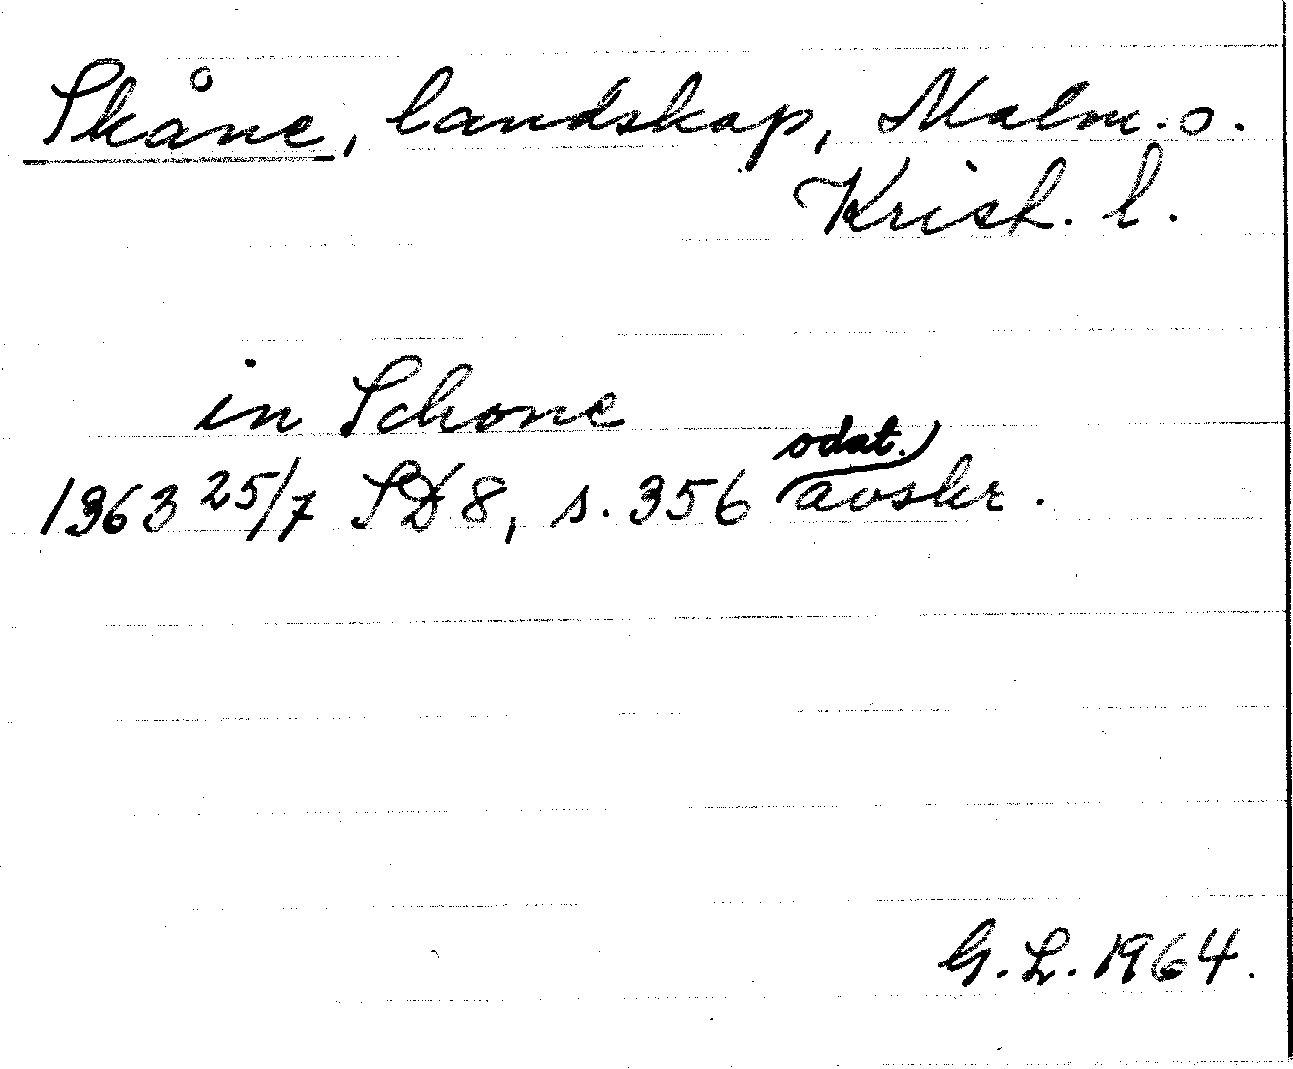 Skåne, landskap, Malm. o.
Krist. l.
in Schone
1363 25/7 SD 8, s. 356 odat. avskr.
G. L. 1964.